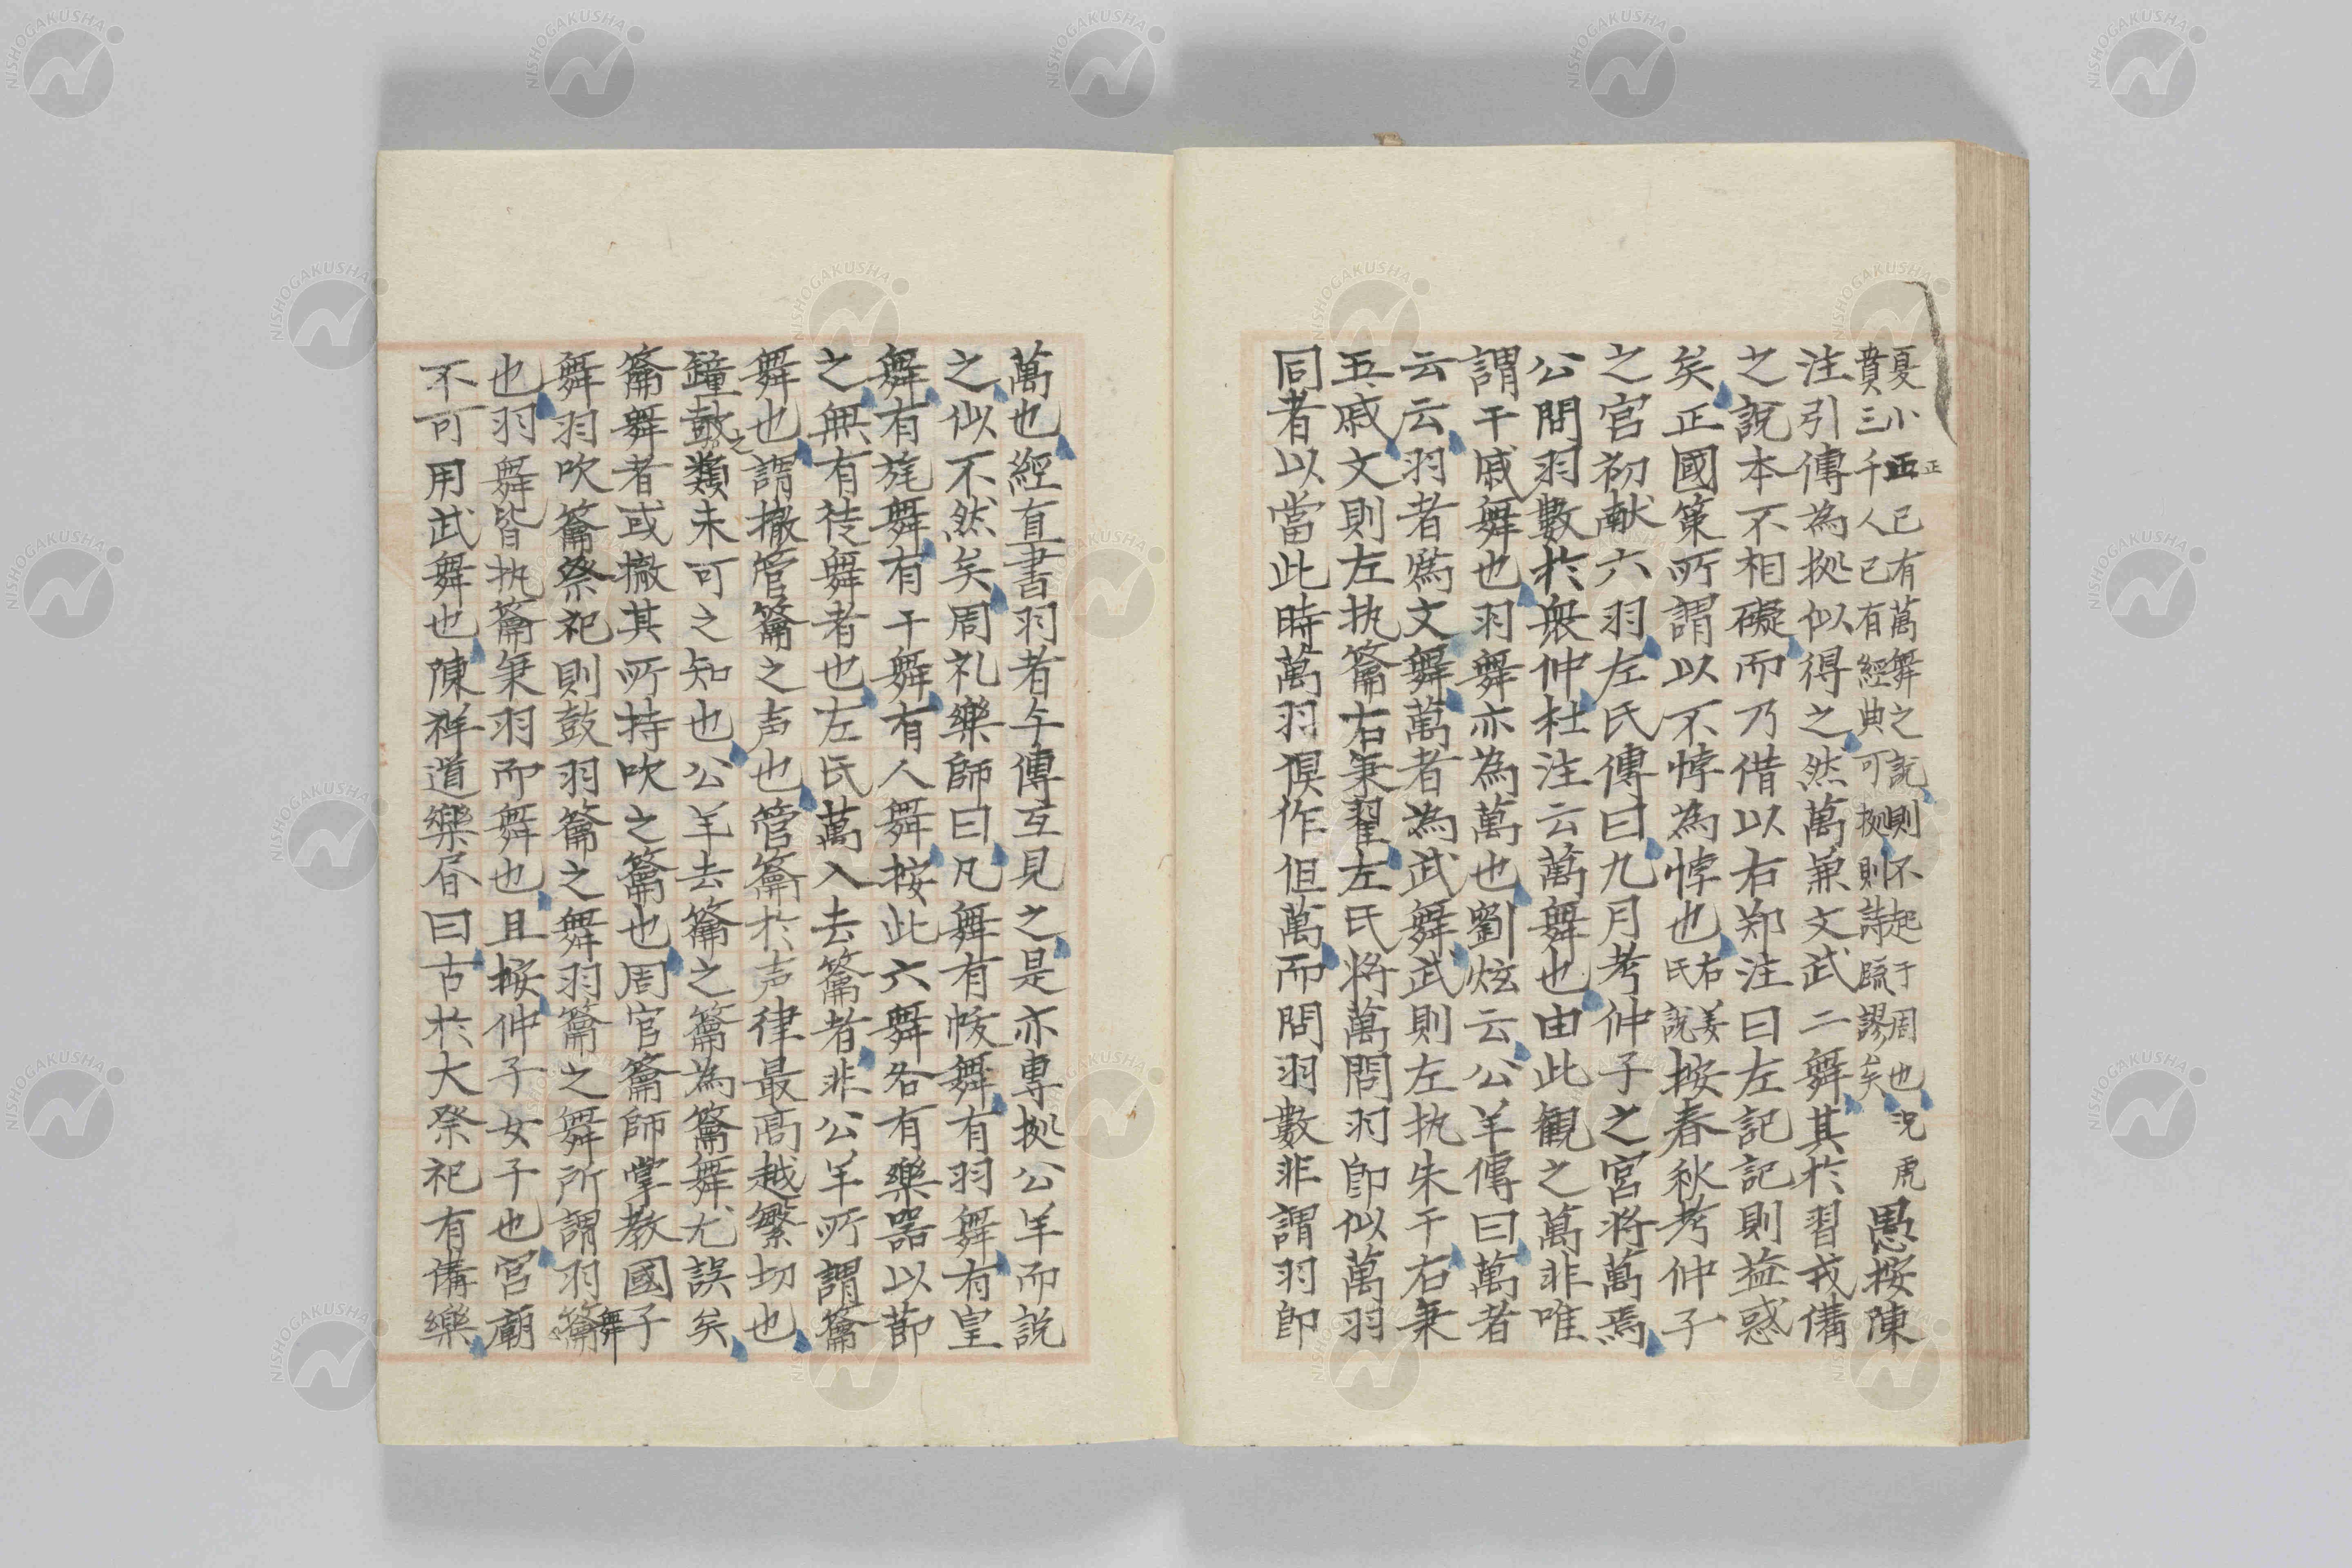 夏小正已有萬舞之説則不起于周也況虎
賁三千人已有經典可拠則詩疏謬矣愚按陳
注引傳為拠似得之然萬兼文武二舞其於習戎備
之説本不相礙而乃借以右郑注曰左記記則益惑
矣正國策所謂以不悖為悖也右姜氏説按春秋考仲子
之宮初献六羽左氏傳曰九月考仲子之宮将萬焉
公問羽數於衆仲杜注云萬舞也由此観之萬非唯
謂干戚舞也羽舞亦為萬也劉炫云公羊傳曰萬者
云云羽者為文舞萬者為武舞武則左执朱干右秉
玉戚文則左执籥右秉翟左氏将萬問羽即似萬羽
同者以當此時萬羽俱作但萬而問羽數非謂羽即
萬也經直書羽者与傳互見之是亦専拠公羊而説
之似不然矣周礼樂師曰凡舞有帗舞有羽舞有皇
舞有旄舞有干舞有人舞按此六舞各有樂器以莭
之無有徒舞者也左氏萬入去籥者非公羊所謂籥
舞也謂撤管籥之声也管籥於声律最高越繁切也
鐘鼓之類未可之知也公羊去籥之籥為籥舞尤誤矣
籥舞者或撤其所持吹之籥也周官籥師掌教國子
舞羽吹籥祭祀則鼓羽籥之舞羽籥之舞所謂羽籥舞
也羽舞皆执籥秉羽而舞也且按仲子女子也宮廟
不可用武舞也陳祥道樂昏曰古於大祭祀有備樂